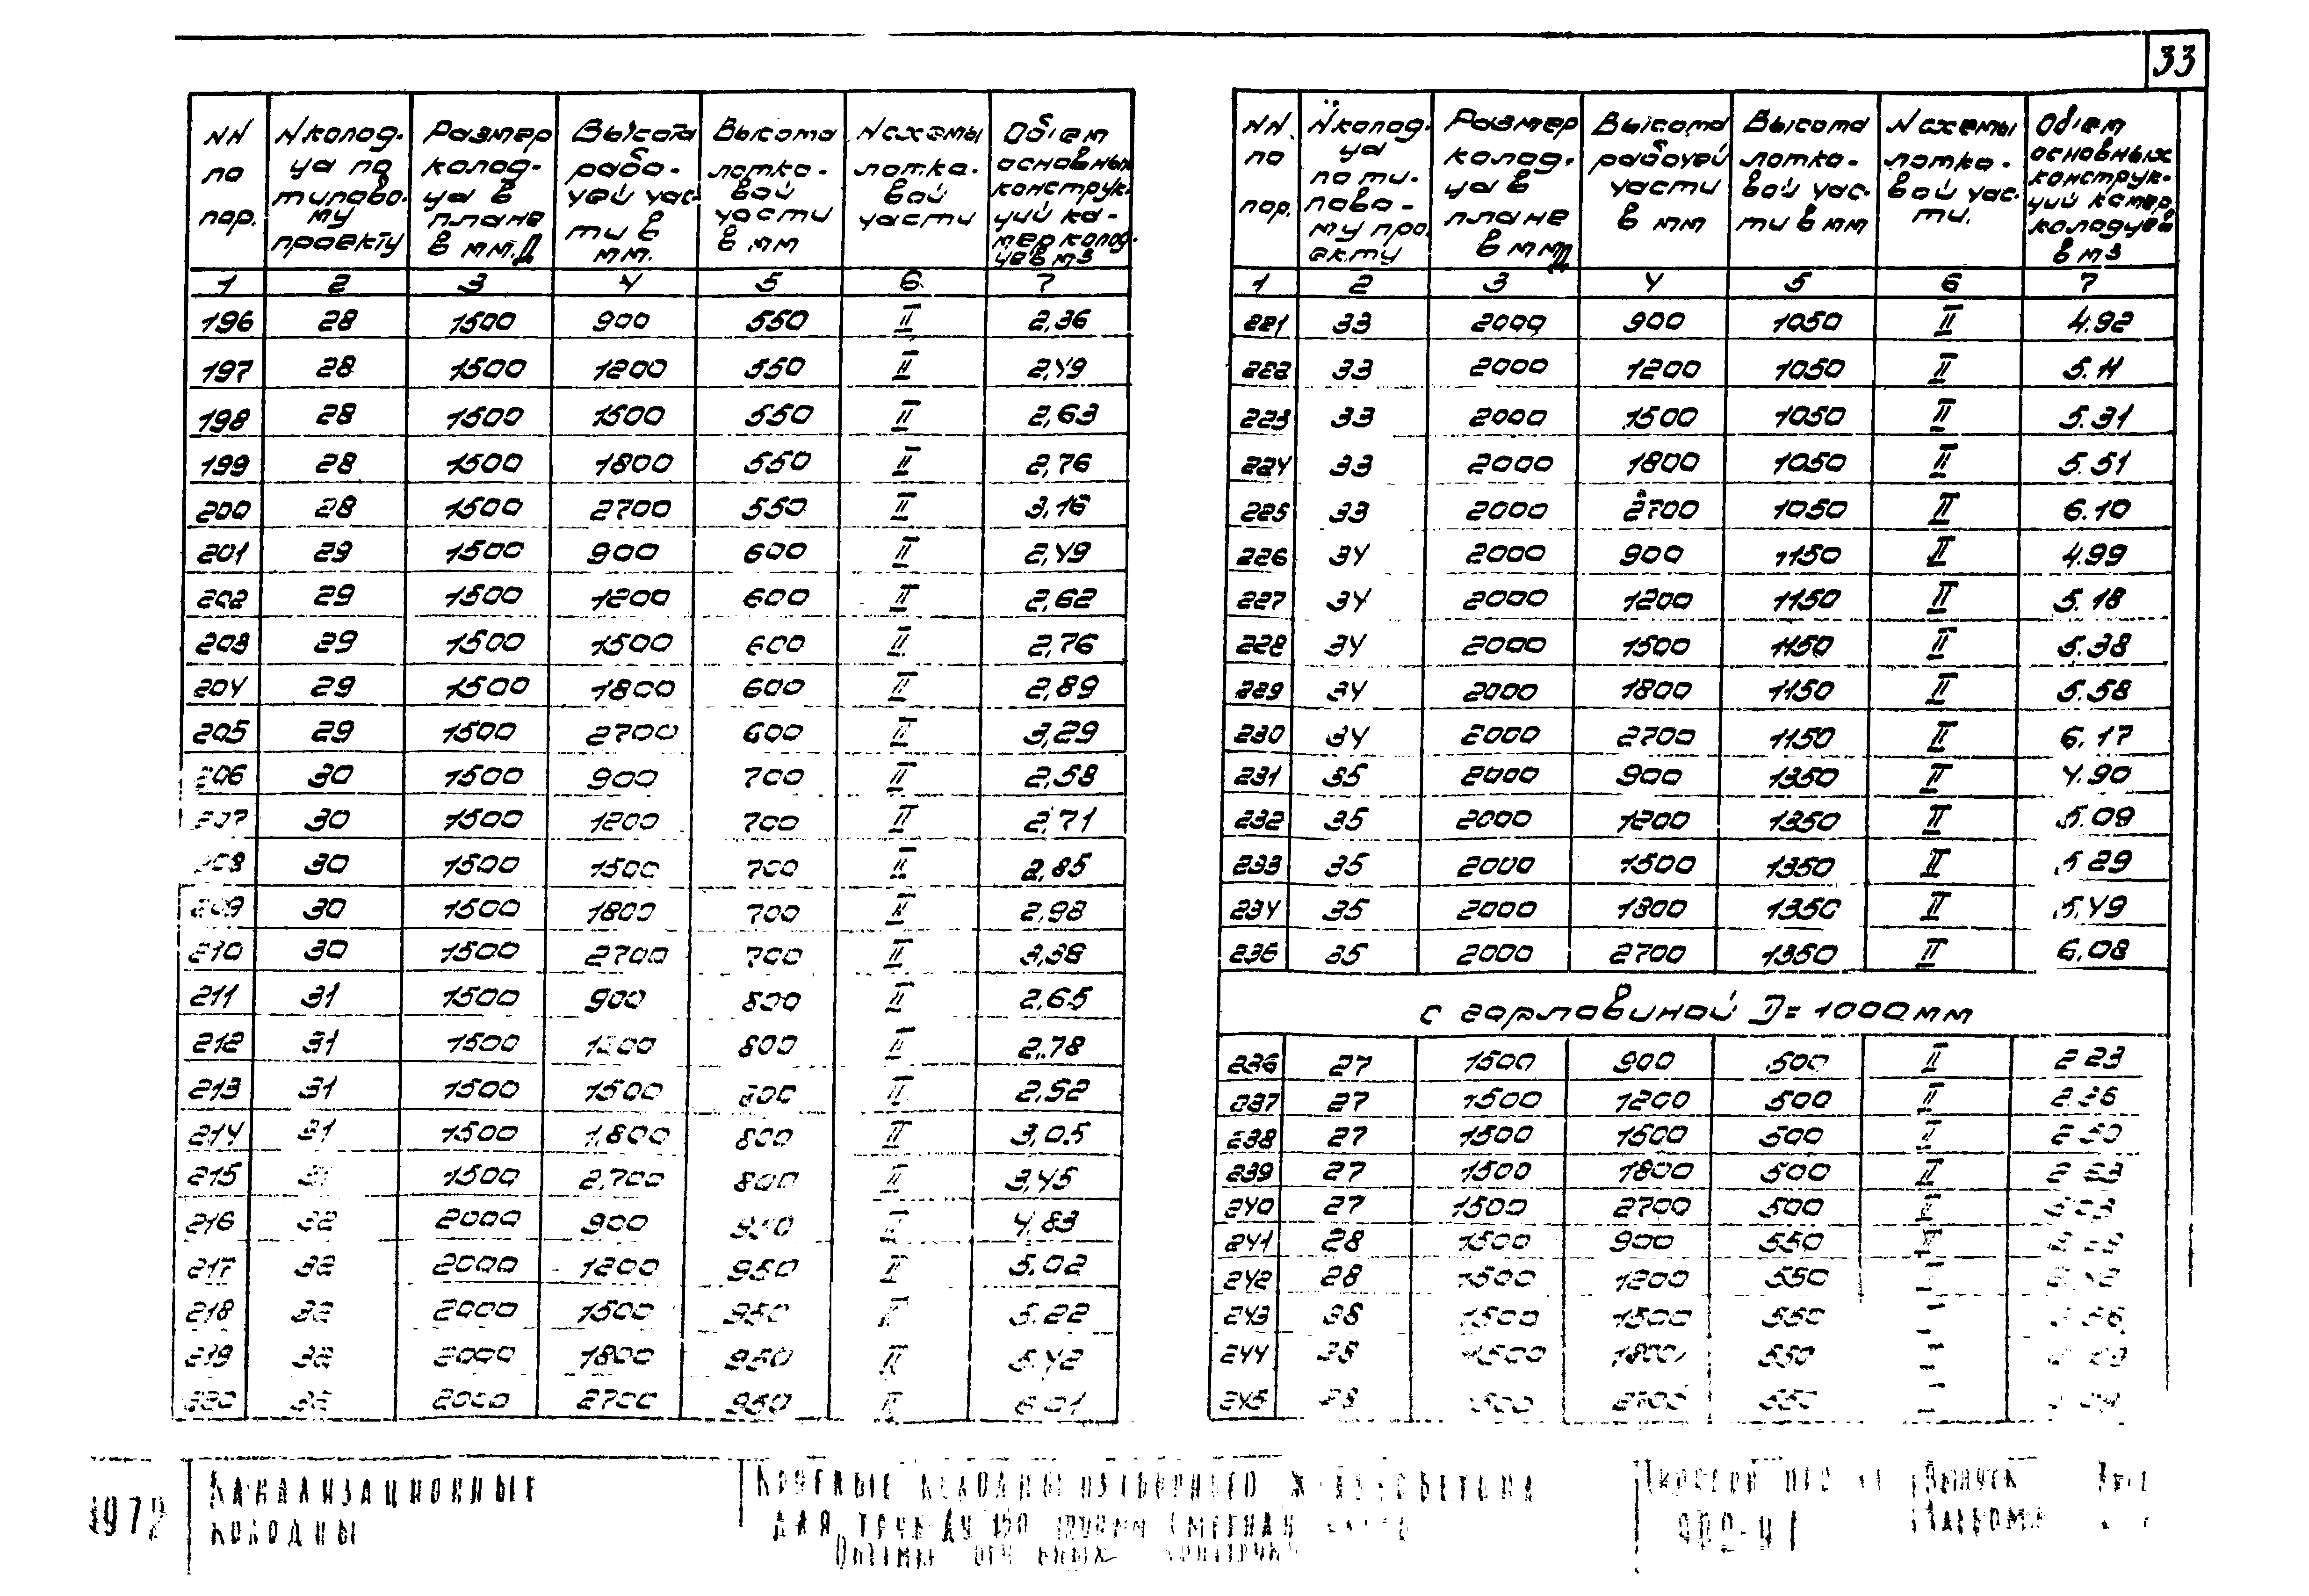 33
NN по пор. | N колод- ца по типово- му проекту | Размер колод- ца в плане в мм. Д | Высота рабо- чей час- ти в мм. | Высота лотко- вой части в мм | N схемы лотко- вой части | Объем основных конструк- ций ка- мер колод- цев м3
1 2 3 4 5 6 7
196 28 1500 900 550 II 2,36
197 28 1500 1200 550 II 2,49
198 28 1500 1500 550 II 2,63
199 28 1500 1800 550 II 2,76
200 28 1500 2700 550 II 3,16
201 29 1500 900 600 II 2,49
202 29 1500 1200 600 II 2,62
203 29 1500 1500 600 II 2,76
204 29 1500 1800 600 II 2,89
205 29 1500 2700 600 II 3,29
206 30 1500 900 700 II 2,58
207 30 1500 1200 700 II 2,71
208 30 1500 1500 700 II 2,85
209 30 1500 1800 700 II 2,98
210 30 1500 2700 700 II 3,38
211 31 1500 900 800 II 2,65
212 31 1500 1200 800 II 2,78
213 31 1500 1500 800 II 2,92
214 31 1500 1,800 800 II 3,05
215 31 1500 2,700 800 II 3,45
216 32 2000 900 950 II 4,83
217 32 2000 1200 950 II 5,02
218 32 2000 1500 950 II 5,22
219 32 2000 1800 950 II 5,42
220 32 2000 2700 950 II 6,01
NN. по пор. | N колод- ца по ти- пово- му про екту | Размер колод- ца в плане в мм Д | Высота рабочей части в мм | Высота лотко- вой час- ти в мм | N схемы лотко- вой час- ти. | Объем основных конструк- ций камер колодцев в м3
1 2 3 4 5 6 7
221 33 2000 900 1050 II 4.92
222 33 2000 1200 1050 II 5.11
223 33 2000 1500 1050 II 5.31
224 33 2000 1800 1050 II 5.51
225 33 2000 2700 1050 II 6.10
226 34 2000 900 1150 II 4.99
227 34 2000 1200 1150 II 5.18
228 34 2000 1500 1150 II 5.38
229 34 2000 1800 1150 II 5.58
230 34 2000 2700 1150 II 6.17
231 35 2000 900 1350 II 4.90
232 35 2000 1200 1350 II 5.09
233 35 2000 1500 1350 II 5.29
234 35 2000 1800 1350 II 5,49
235 35 2000 2700 1350 II 6,08
с горловиной D= 1000 мм
236 27 1500 900 500 II 2 23
237 27 1500 1200 500 II 2.36
238 27 1500 1500 500 II 2 50
239 27 1500 1800 500 II 2 63
240 27 1500 2700 500 II
241 28 1500 900 550 II
242 28 1500 1200 550
243 28 1500 1500 550
244 28 1500 1800 550
245 28 1500 2700 550
1972
Канализационные
колодцы
Круглые колодцы из сборного железобетона
для труб Ду 150
Объемы основных
Типовой проект
902-9-1
Выпуск
Альбом